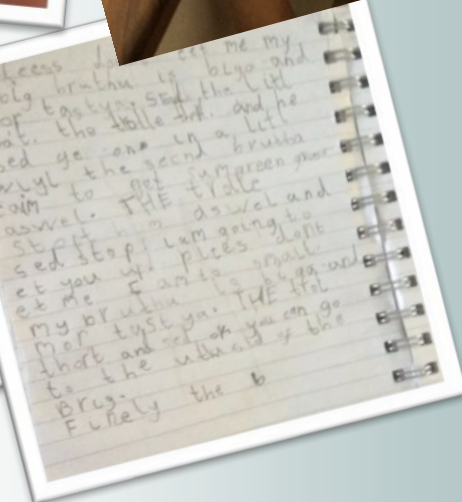 me my
big bruthu is biga and
mor tastya. sed the litl
the trolle and he
sed ye one in a litl
the secnd brutha
caim to get sum green
aswel. THE trolle
him aswel and
sed stop! I am going to
et you up. plees dont
et me I am to small.
my bruthu is biga and
mor tastya. THE trol
thort and sed ok you can go
to the uthu sid of the
Brig.
Finely the b